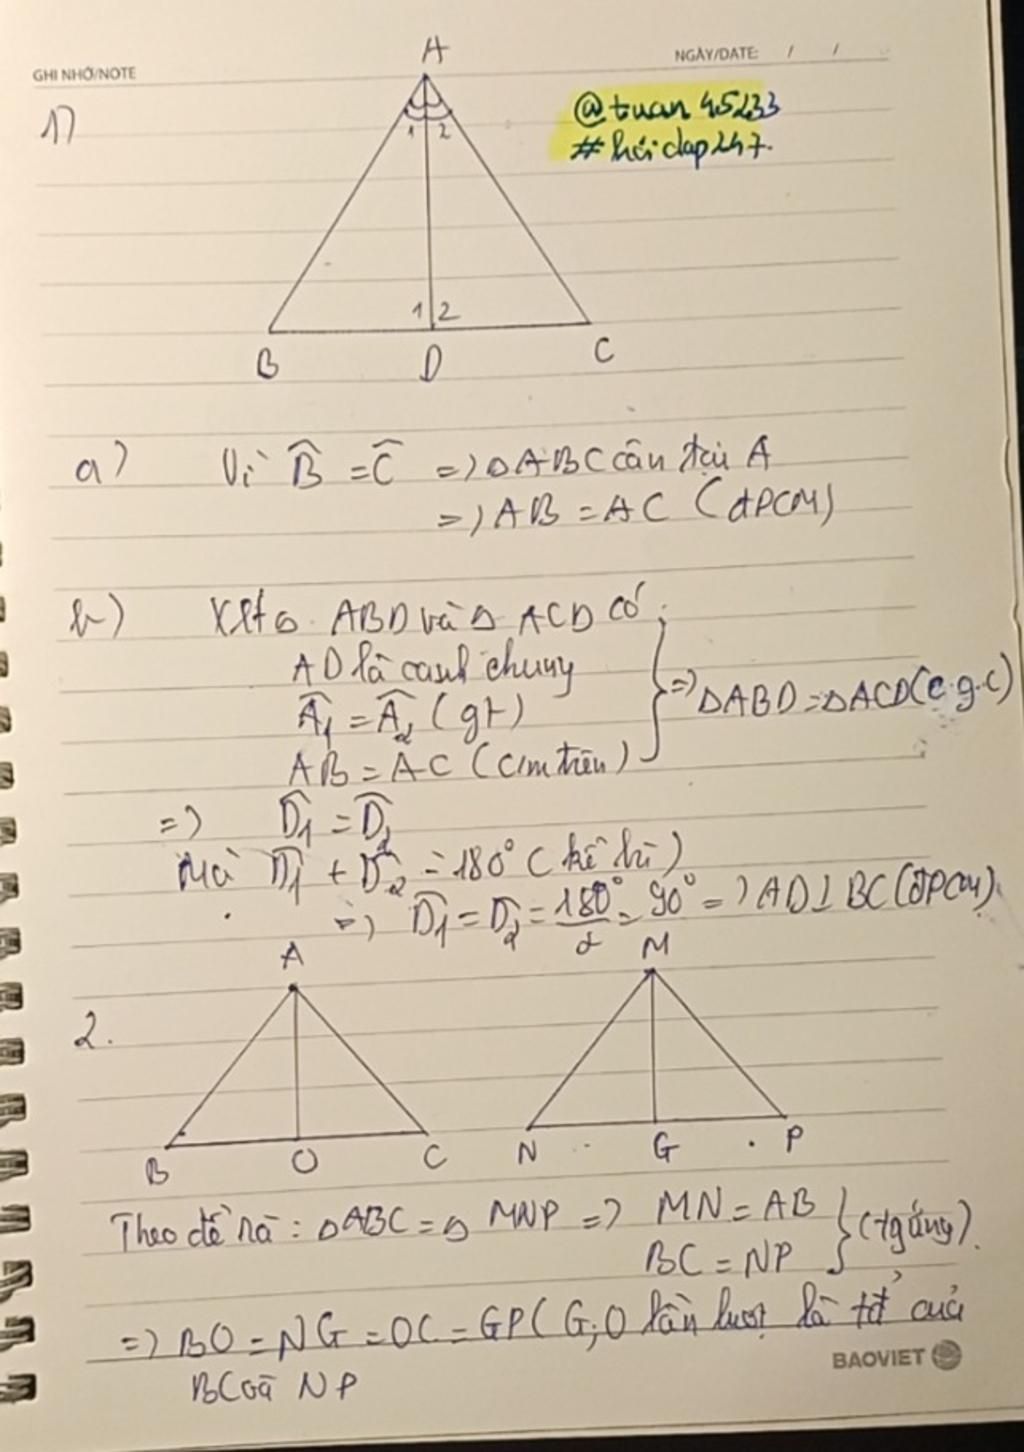 GHI NHỚ/NOTE
NGÀY/DATE: / /
@tuan45233
#hoidap247.
1)
A
1 2
1 2
B D C
a) Vì B̂ = Ĉ => ΔABC cân tại A
=> AB = AC (đPCM)
b) Xét Δ ABD và Δ ACD có:
AD là cạnh chung
Â1 = Â2 (gt)
AB = AC (c/m trên)
=> ΔABD = ΔACD (c.g.c)
=> D̂1 = D̂2
Mà D̂1 + D̂2 = 180° (kề bù)
=> D̂1 = D̂2 = 180°/2 = 90° => AD ⊥ BC (đPCM)
2.
A M
B O C N G P
Theo đề ra: ΔABC = Δ MNP => MN = AB
BC = NP } (tgứng).
=> BO = NG = OC = GP (G;O lần lượt là tđ của
BC và NP
BAOVIET